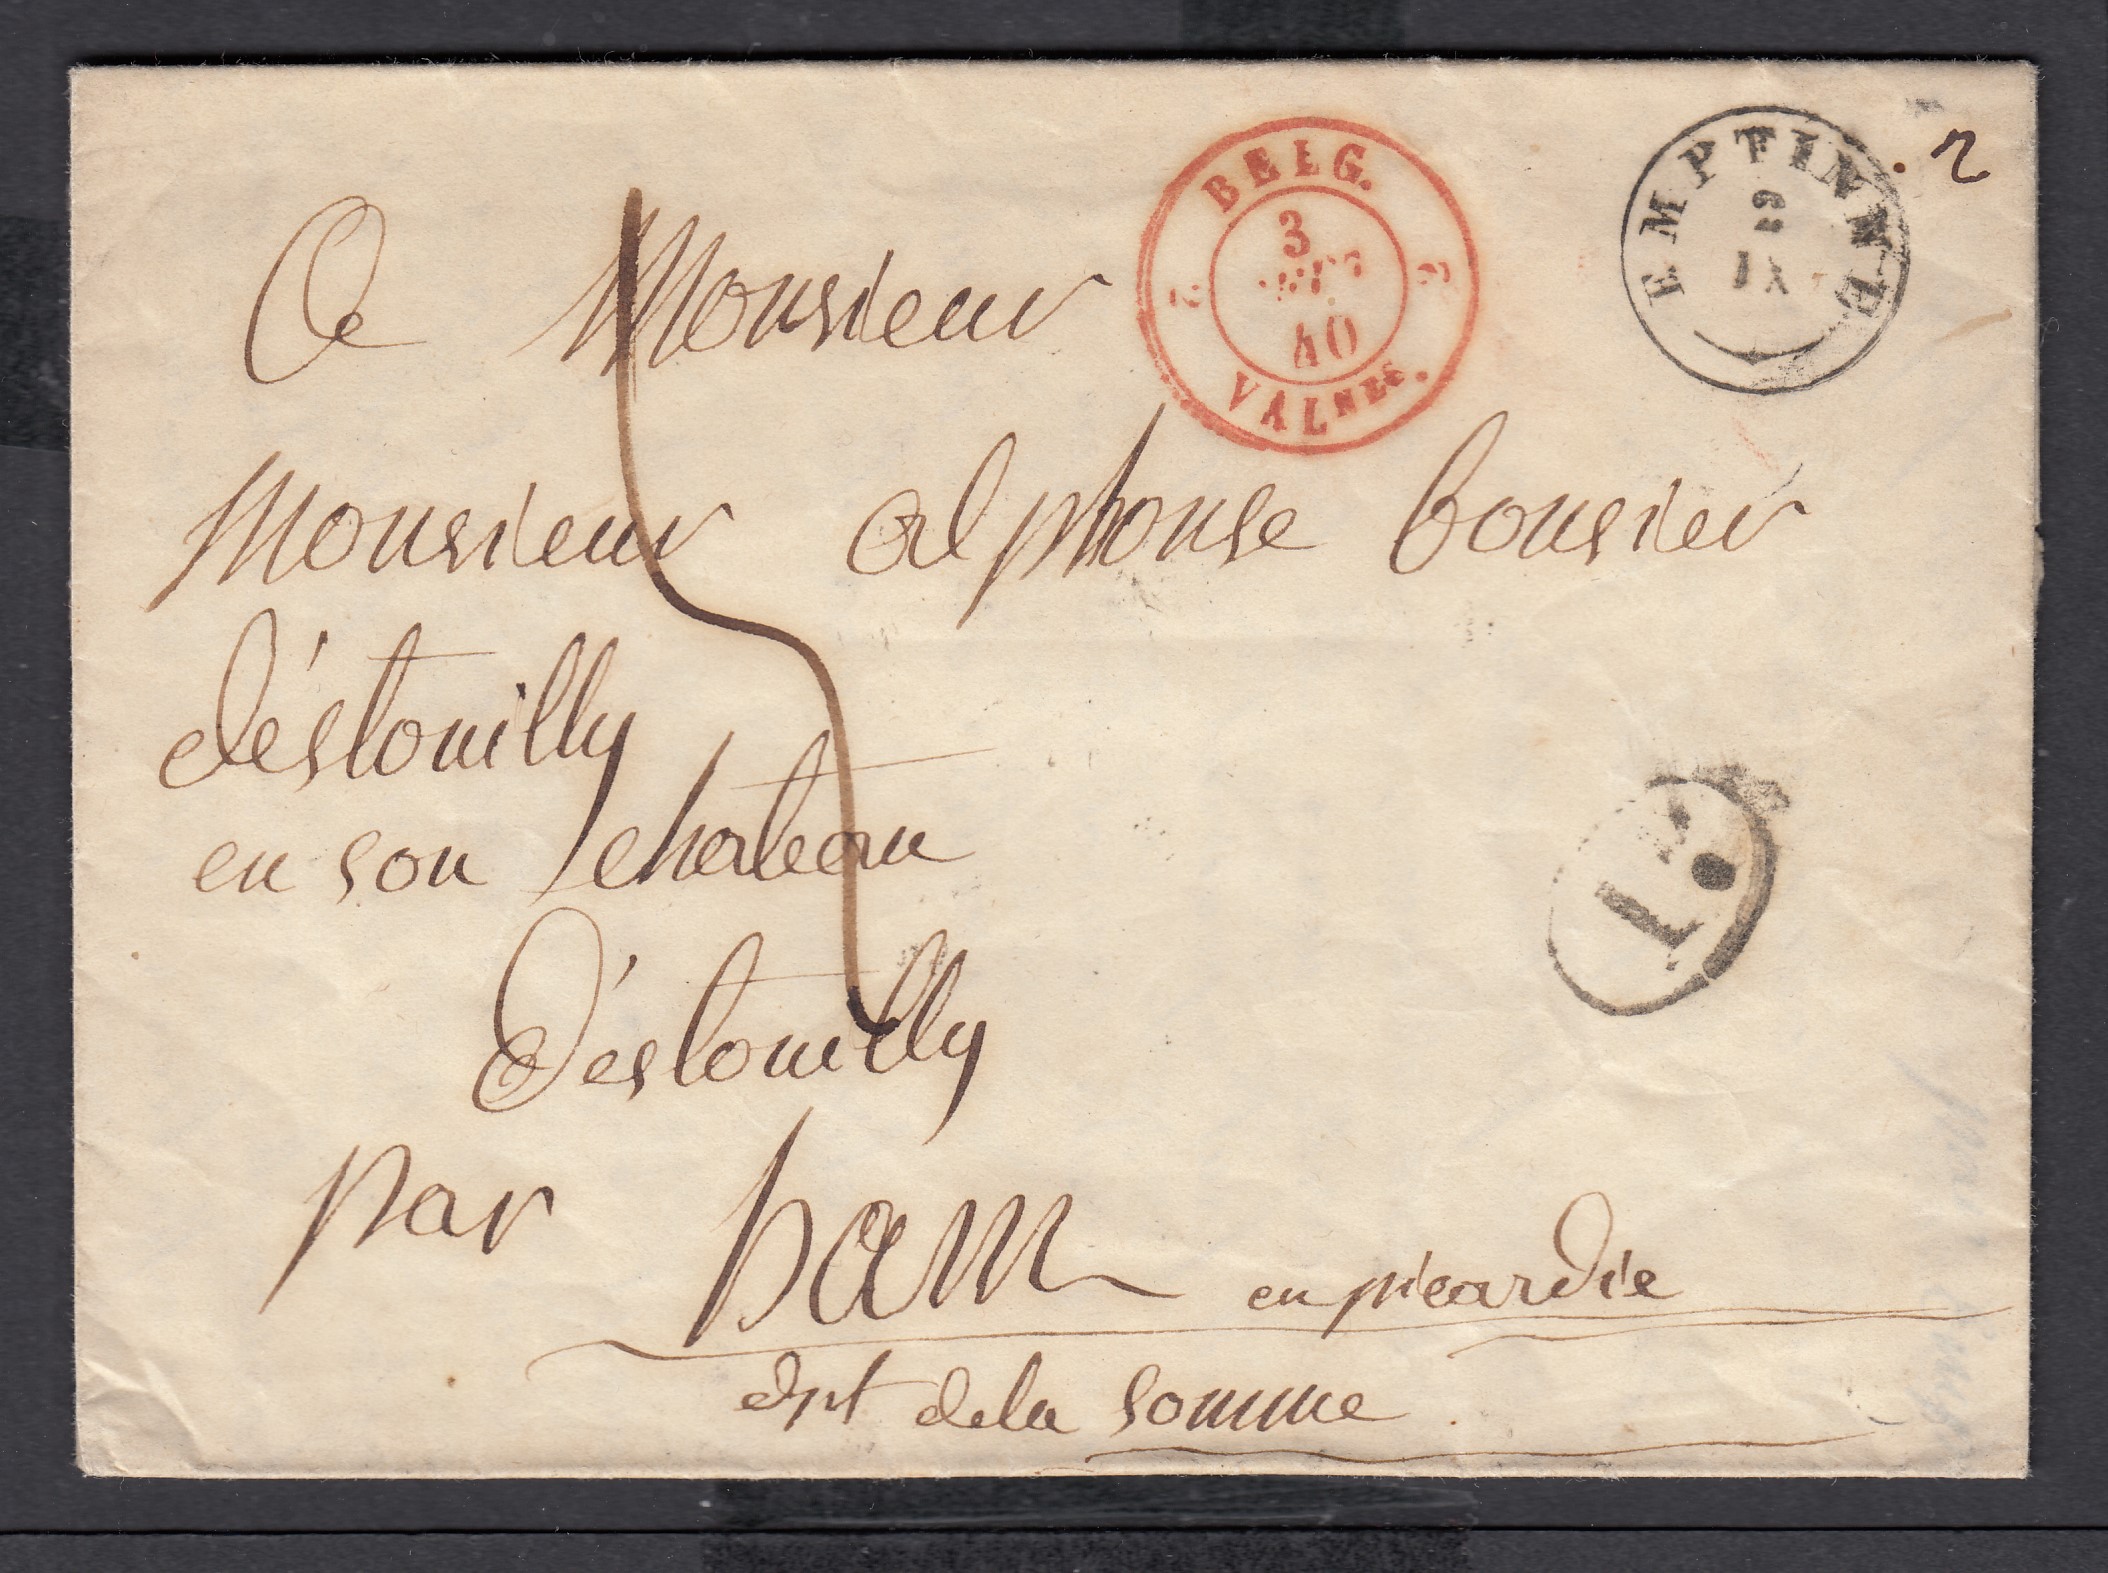 BELG.
3
SEPT
40
VALNES.
2 2
EMPTINNE
2
IX
2
A Monsieur
Monsieur alphonse bousier
d'éstouilly
en son chateau
D'éstouilly
par ham en picardie
dpt de la somme